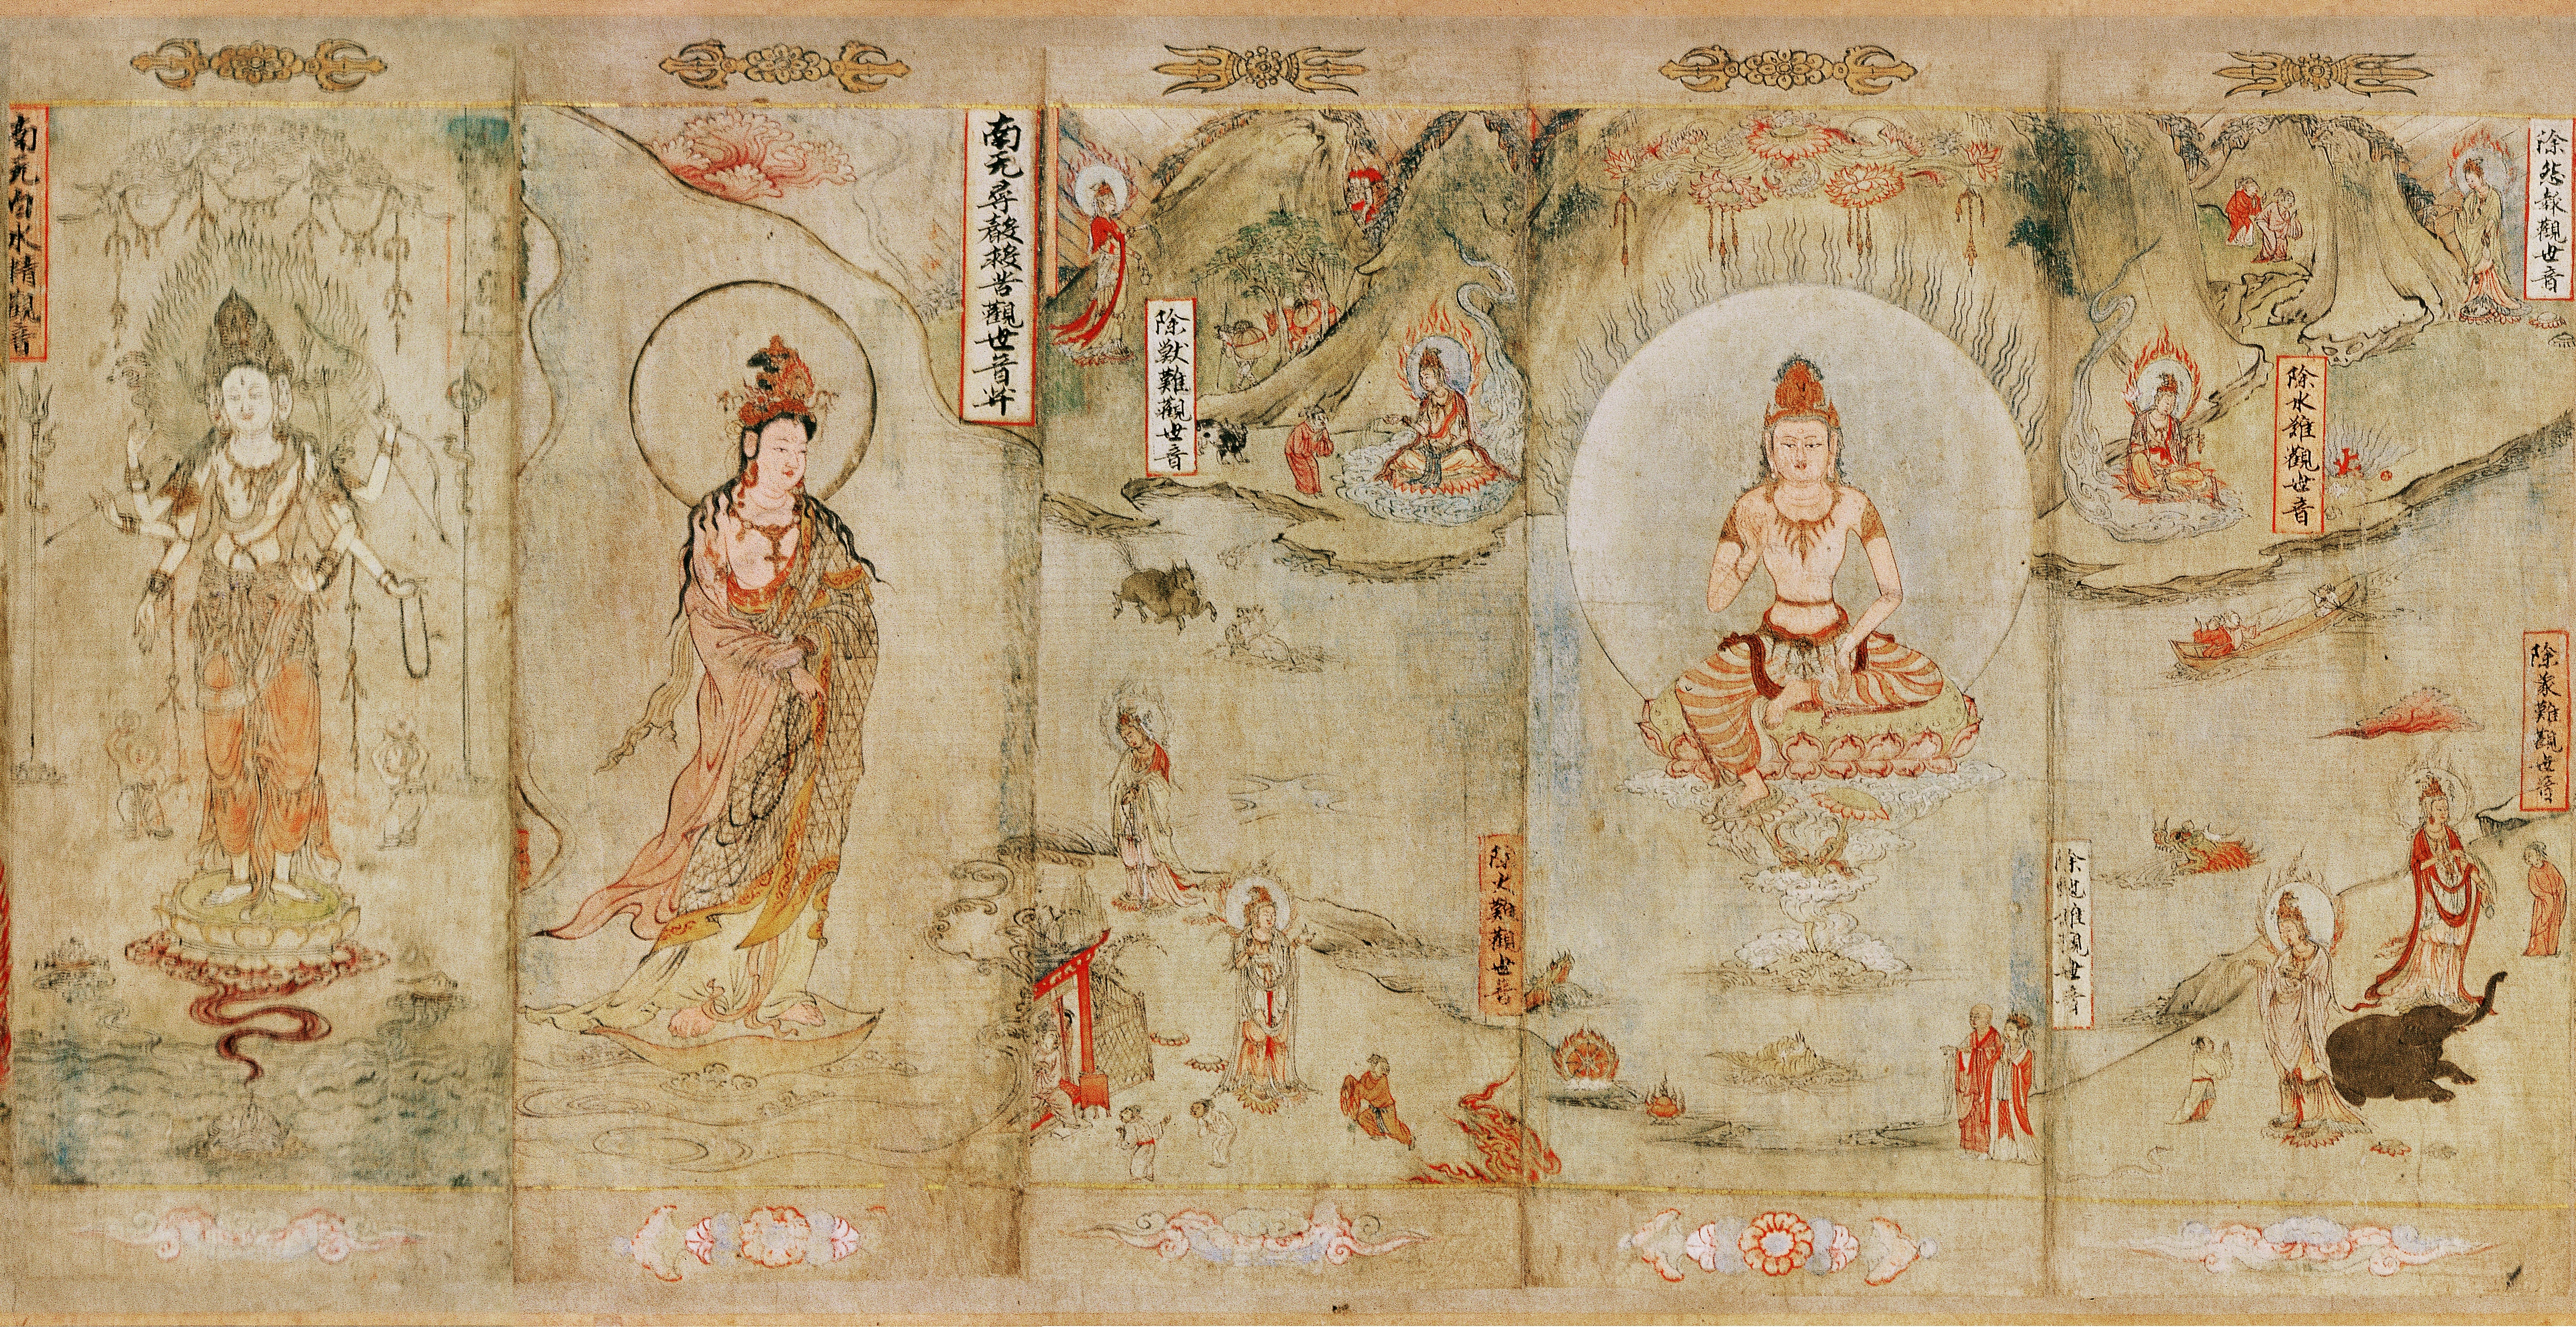 除怨報觀世音
除水難觀世音
除象難觀世音
除虵難觀世音
除獸難觀世音
除火難觀世音
南无尋聲救苦觀世音𦬇
南无白水精觀音